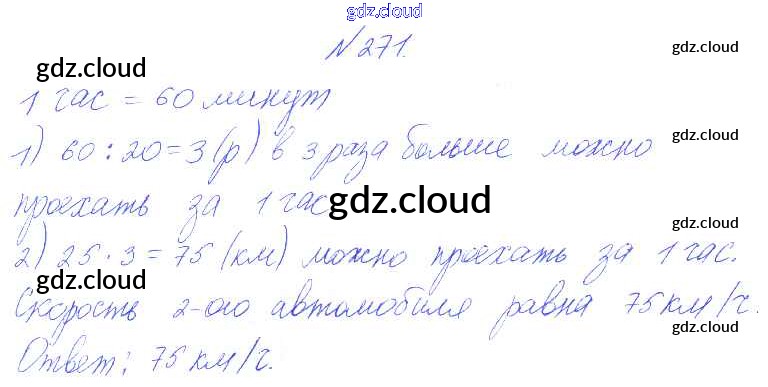 gdz.cloud
№271.
gdz.cloud
gdz.cloud
1 час = 60 минут
1) 60 : 20 = 3 (р) в 3 раза больше можно
gdz.cloud
gdz.cloud
проехать за 1 час
gdz.cloud
gdz.cloud
2) 25 · 3 = 75 (км) можно проехать за 1 час.
gdz.cloud
Скорость 2-ого автомобиля равна 75 км/ч.
gdz.cloud
Ответ: 75 км/ч.